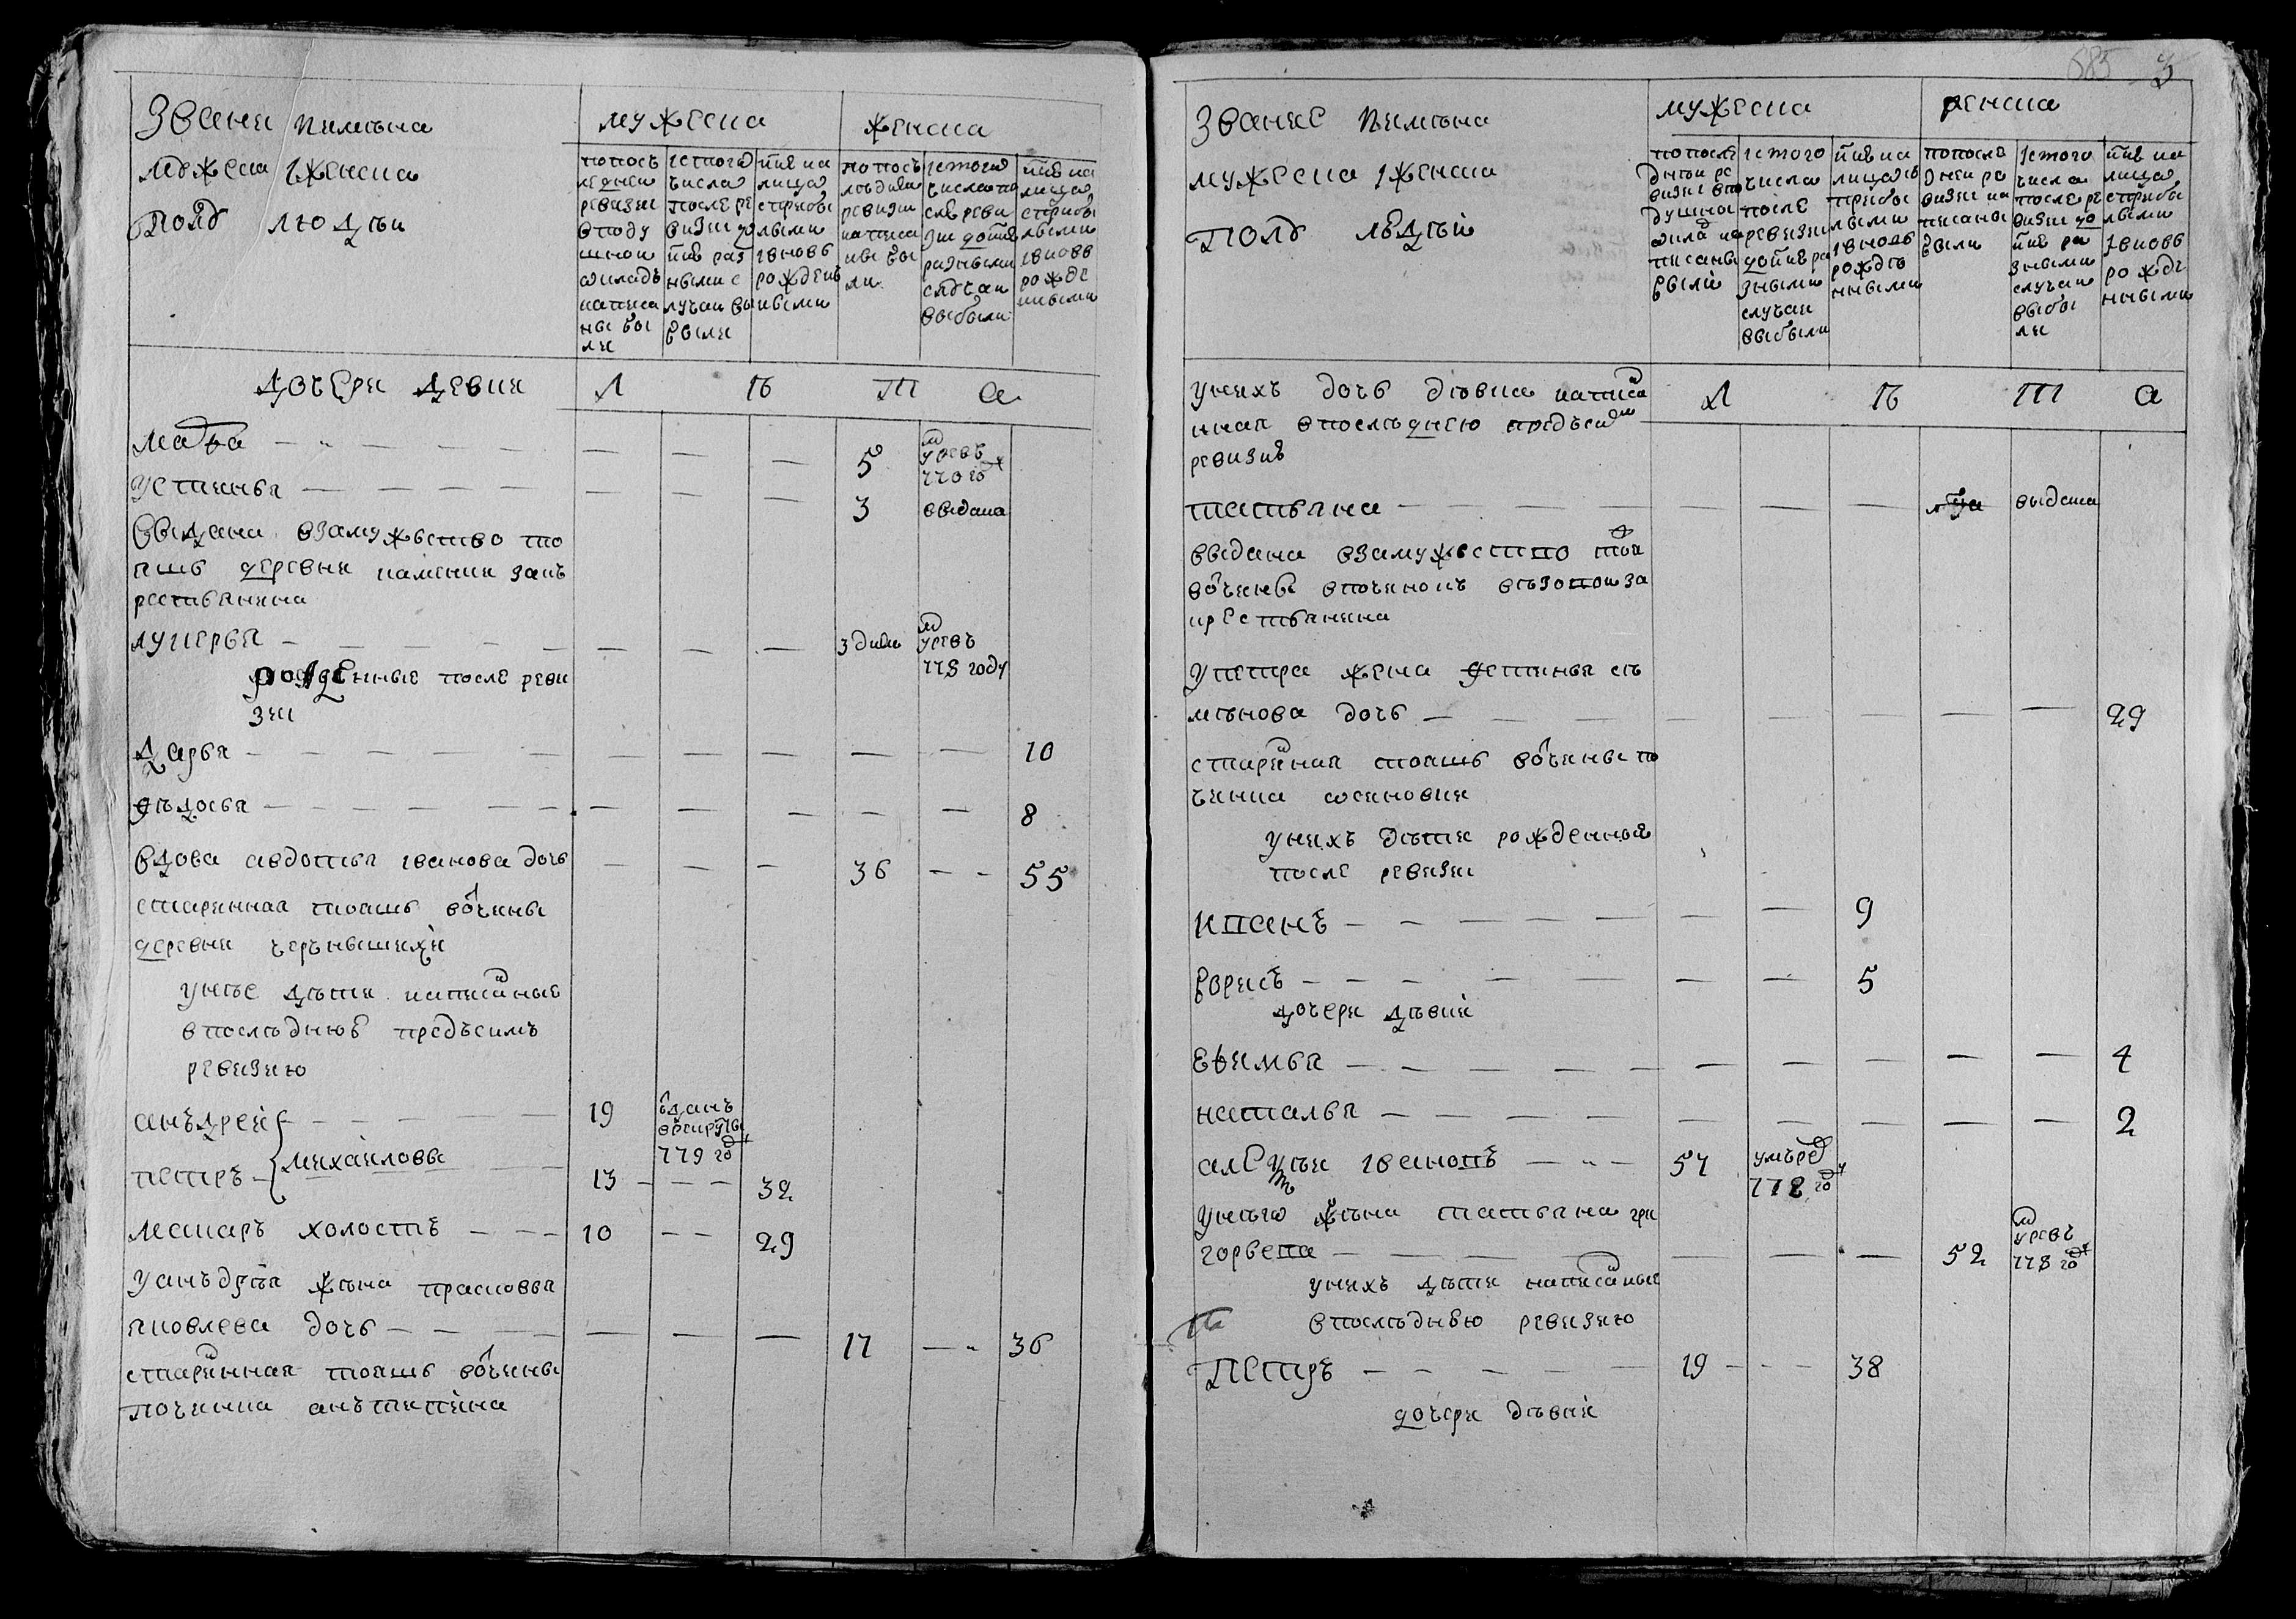 685 3
Звание имѣна
мужеска іженска
полꙋ людѣи
мужеска
женска
попосъ
ледней
ревизии
вподу
шной
окладъ
написа
ны бы
ли
істого
числа
после ре
визии до
нне раз
ными с
лучаи вы
были
нне на
лицо
сприбы
лыми
івновь
рожден
ными
попосъ
лѣдней
ревизии
написа
ны бы
ли
істого
числа по
сле реви
зии до нне
разными
случаи
выбыли
нне на
лицо
сприбы
лыми
івновь
рожде
нными
дочери девки
л п т а
марѳа 5 умрѣ 770 го
устинья 3 выдана
выдана взамужьство то
яшь деревни каменки закъ
рестьянина
лукерья 3 дни умрѣ 778 году
рожденные после реви
зии
дарья 10
ѳѣдосья 8
вдова авдотья іванова дочь 36 55
старинная тояшь вочины
деревни черънышихи
унѣе дѣти написаные
впослѣднюю предъсимъ
ревизию
анъдрей 19 ѿданъ врекруты 779 го
михайловы
петръ 13 32
макаръ холостъ 10 29
уанъдрѣя жѣна прасковья
яковлева дочь 17 36
старинная тояшь вочины
починка анътипина
Звание имѣна
мужеска іженска
полꙋ лѣдѣй
мужеска
женска
попосле
дней ре
визии впо
душной
окладъ на
писаны
были
істого
числа
после
ревизии
до нне ра
зными
случаи
выбыли
нне на
лицо с
прибы
лыми
івновь
рожде
нными
попосле
дней ре
визии на
писаны
были
істого
числа
после ре
визии до
нне ра
зными
случаи
выбы
ли
нне на
лицо
сприбы
лыми
івновь
рожде
нными
унихъ дочь дѣвка написа
нная впослѣднею предъсимъ
ревизию
л п т а
татьяна выдана
выдана взамужество тоя
вочины впочинокъ за
крестьянина
упетра жена устинья сѣ
мѣнова дочь 29
старинная тояшь вочины по
чинка осиновки
унихъ дѣти рожденные
после ревизии
иванъ 9
борисъ 5
дочери дѣвки
еѳимья 4
наталья 2
алексѣй івановъ 57 умъре 778 го
унѣго жѣна татьяна гри
горьева 52 умрѣ 778 го
унихъ дѣти написаные
впослѣднью ревизию
петръ 19 38
дочери дѣвки